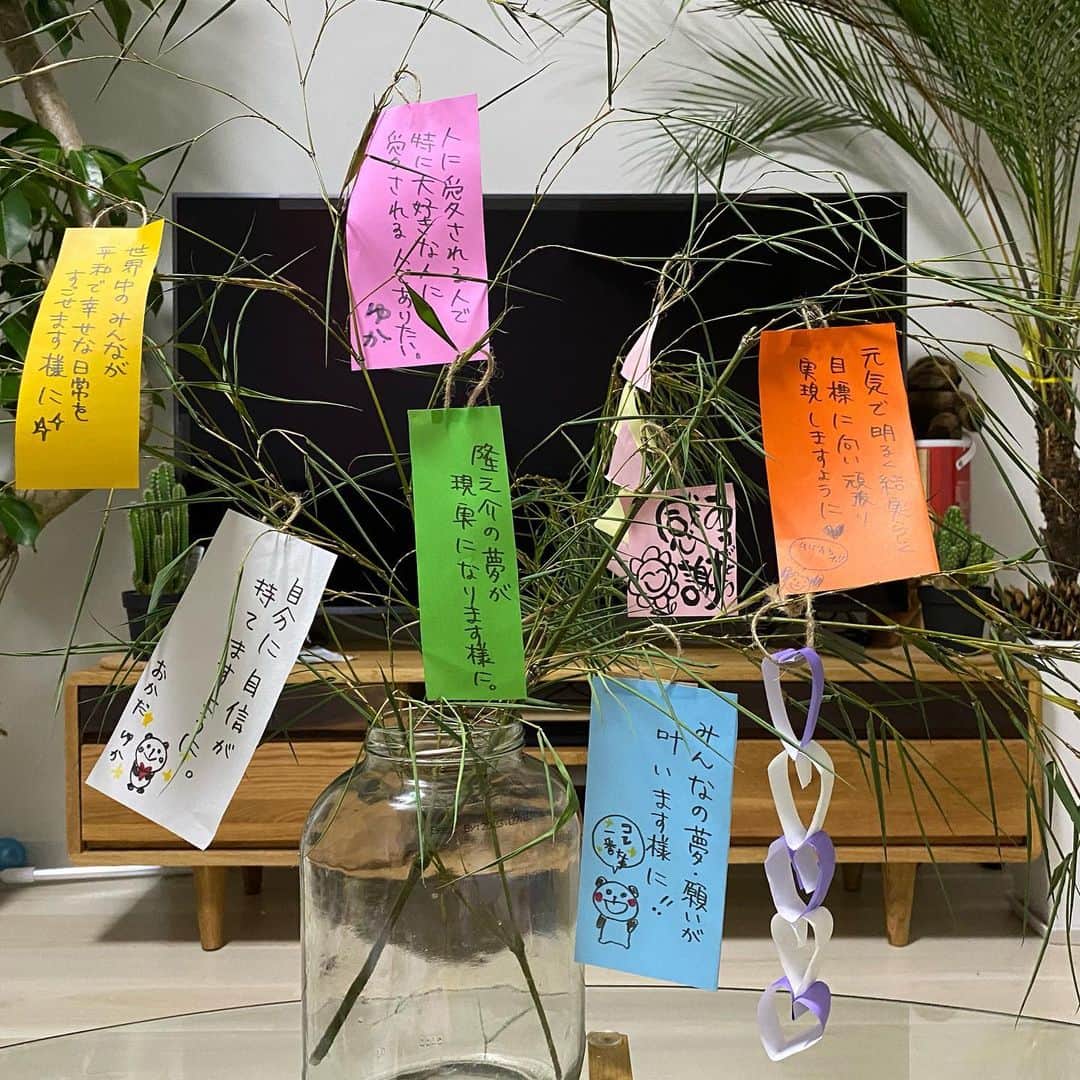 世界中のみんなが
平和で幸せな日常を
すごせます様に
人に愛される人で
特に大好きな人に
愛される人でありたい。
ゆか
隆之介の夢が
現実になります様に。
元気で明るく結実して
目標に向い頑張り
実現しますように
感謝
自分に自信が
持てますように。
おかだ
ゆか
みんなの夢・願いが
叶います様に!!
コレ
一番大